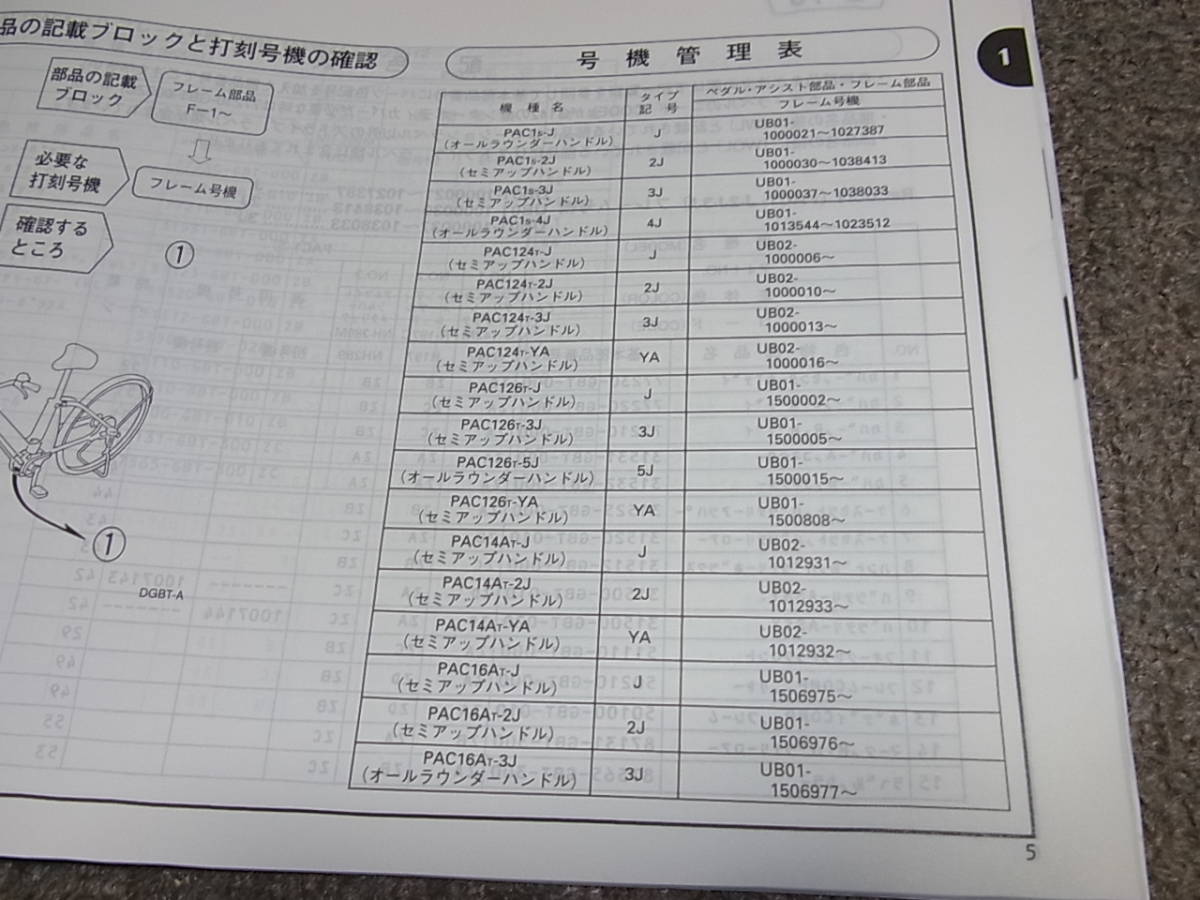 品の記載ブロックと打刻号機の確認
部品の記載
ブロック
フレーム部品
F－1～
必要な
打刻号機
フレーム号機
確認する
ところ
①
①
DGBT-A
号機管理表
1
機種名
タイプ
記号
ペダル・アシスト部品・フレーム部品
フレーム号機
PAC1S-J
(オールラウンダーハンドル)
J
UB01-
1000021～1027387
PAC1S-2J
(セミアップハンドル)
2J
UB01-
1000030～1038413
PAC1S-3J
(セミアップハンドル)
3J
UB01-
1000037～1038033
PAC1S-4J
(オールラウンダーハンドル)
4J
UB01-
1013544～1023512
PAC124T-J
(セミアップハンドル)
J
UB02-
1000006～
PAC124T-2J
(セミアップハンドル)
2J
UB02-
1000010～
PAC124T-3J
(セミアップハンドル)
3J
UB02-
1000013～
PAC124T-YA
(セミアップハンドル)
YA
UB02-
1000016～
PAC126T-J
(セミアップハンドル)
J
UB01-
1500002～
PAC126T-3J
(セミアップハンドル)
3J
UB01-
1500005～
PAC126T-5J
(オールラウンダーハンドル)
5J
UB01-
1500015～
PAC126T-YA
(セミアップハンドル)
YA
UB01-
1500808～
PAC14AT-J
(セミアップハンドル)
J
UB02-
1012931～
PAC14AT-2J
(セミアップハンドル)
2J
UB02-
1012933～
PAC14AT-YA
(セミアップハンドル)
YA
UB02-
1012932～
PAC16AT-J
(セミアップハンドル)
J
UB01-
1506975～
PAC16AT-2J
(セミアップハンドル)
2J
UB01-
1506976～
PAC16AT-3J
(オールラウンダーハンドル)
3J
UB01-
1506977～
5